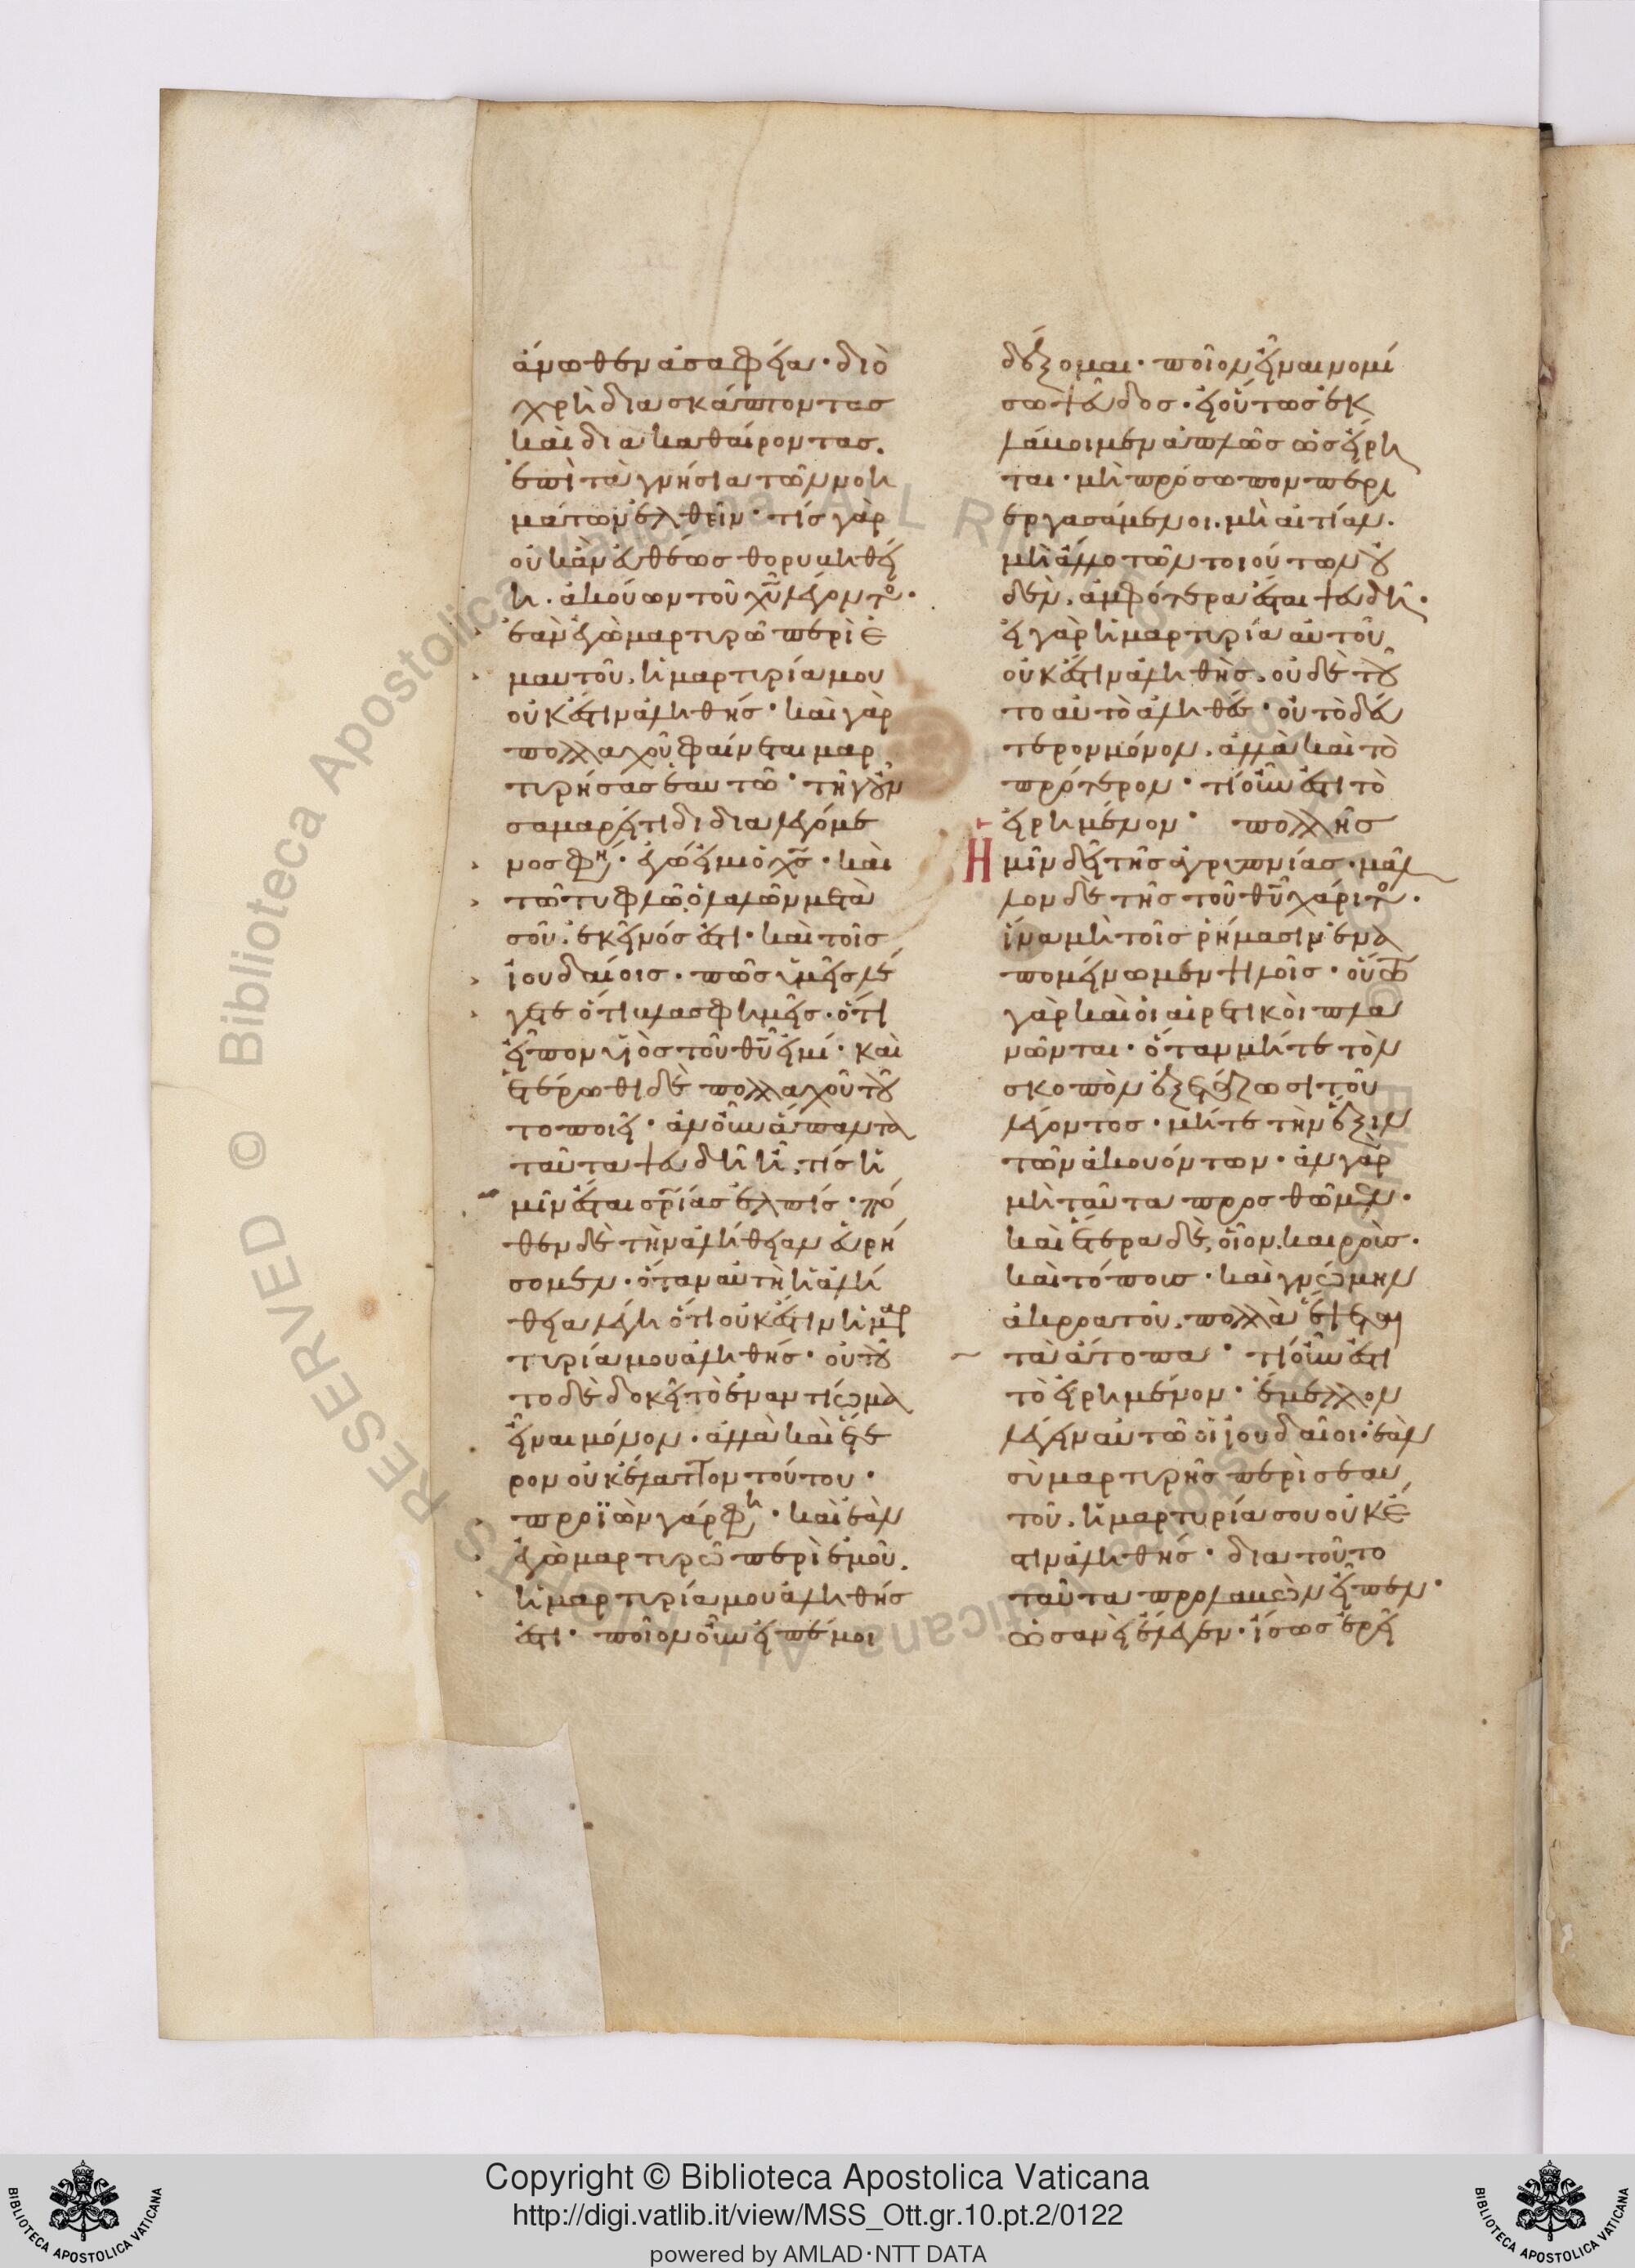 ἄνωθεν ἀσαφεία· διὸ
χρὴ διασκάπτοντας
καὶ διακαθαίροντας.
ἐπὶ τὰ γνήσια τῶν νοη
μάτων ἐλθεῖν· τίς γὰρ
οὐκ ἂν εὐθέως θορυβηθεί
η. ἀκούων τοῦ χῡ λέγοντο·
ἐὰν ἐγὼ μαρτυρῶ περὶ ἐ
μαυτοῦ, ἡ μαρτυρία μου
οὐκ ἔστιν ἀληθής· καὶ γὰρ
πολλαχοῦ φαίνεται μαρ
τυρήσας ἑαυτῶ· τῆ γοῦν
σαμαρείτιδι διαλεγόμε
νος φη· ἐγώ εἰμι ὁ χς· καὶ
τῶ τυφλῶ, ὁ λαλῶν μετὰ
σοῦ. ἐκεῖνός ἐστι· καὶ τοῖς
ἰουδαίοις· πῶς ὑμεῖς λέ
γετε ὅτι βλασφημεῖς· ὅτι
εἶπον υἱὸς τοῦ θῡ εἰμί· καὶ
ἑτέρωθι δὲ πολλαχοῦ τοῦ
το ποιεῖ· ἂν οὖν ἅπαντα
ταῦτα ψευδῆ ἦ, τίς ἡ
μῖν ἔσται σρίας ἐλπίς· πό
θεν δὲ τὴν ἀλήθειαν εὑρή
σομεν· ὅταν αὐτὴ ἡ ἀλή
θεια λέγη ὅτι οὐκ ἔστιν ἡ μαρ
τυρία μου ἀληθής· οὐ τοῦ
το δὲ δοκεῖ τὸ ἐναντίωμα
εἶναι μόνον· ἀλλὰ καὶ ἕτε
ρον οὐκ ἔλαττον τούτου·
προϊὼν γάρ φη· καὶ ἐὰν
ἐγὼ μαρτυρῶ περὶ ἐμοῦ.
ἡ μαρτυρία μου ἀληθής
ἐστι· ποῖον οὖν εἰπέ μοι
δέξομαι· ποῖον εἶναι νομί
σω ψεῦδος· εἰ οὕτως ἐκ
λάβοιμεν ἁπλῶς ὡς εἴρη
ται· μὴ πρόσωπον περι
εργασάμενοι. μὴ αἰτίαν.
μὴ ἄλλο τῶν τοιούτων οὐ
δέν. ἀμφότερα ἔσται ψευδῆ·
εἰ γὰρ ἡ μαρτυρία αὐτοῦ
οὐκ ἔστιν ἀληθὴς. οὐδὲ τοῦ
το αὐτὸ ἀληθὲς· οὐ τὸ δεύ
τερον μόνον. ἀλλὰ καὶ τὸ
πρότερον· τί οὖν ἐστι τὸ
εἰρημένον· πολλῆς
Ημῖν δεῖ τῆς ἀγρυπνίας· μᾶλ
λον δὲ τῆς τοῦ θῡ χάριτο·
ἵνα μὴ τοῖς ῥήμασιν ἐνα
πομείνωμεν ψιλοῖς· οὕτω
γὰρ καὶ οἱ αἱρετικοὶ πλα
νῶνται· ὅταν μήτε τὸν
σκοπὸν ἐξετάζωσι τοῦ
λέγοντος· μήτε τὴν ἕξιν
τῶν ἀκουόντων· ἂν γὰρ
μὴ ταῦτα προσθῶμεν·
καὶ ἕτερα δὲ, οἷον. καιροὺς·
καὶ τόπους· καὶ γνώμην
ἀκροατοῦ. πολλὰ ἕψεται
τὰ ἄτοπα· τί οὖν ἐστι
τὸ εἰρημένον· ἔμελλον
λέγειν αὐτῶ οἱ ἰουδαῖοι· ἐὰν
σὺ μαρτυρῆς περὶ σεαυ
τοῦ. ἡ μαρτυρία σου οὐκ ἔ
στιν ἀληθής· διὰ τοῦτο
ταῦτα προλαβὼν εἶπεν·
ὡσανεὶ ἔλεγεν· ἴσως ἐρεῖ
Copyright © Biblioteca Apostolica Vaticana
http://digi.vatlib.it/view/MSS_Ott.gr.10.pt.2/0122
powered by AMLAD·NTT DATA